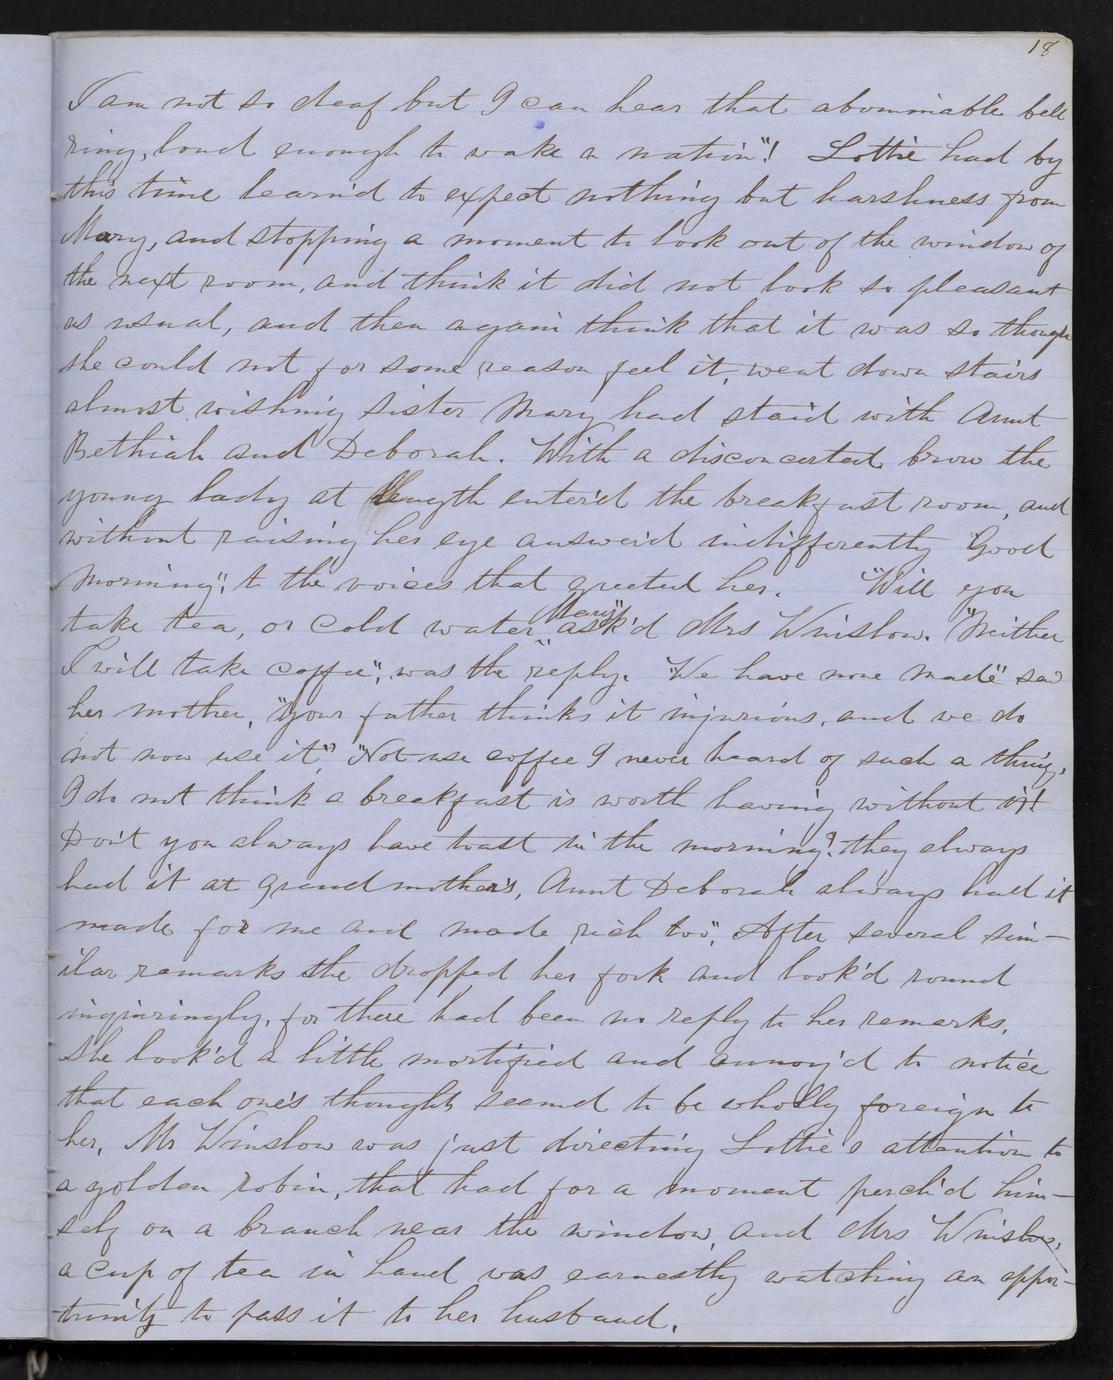 18
I am not so deaf but I can hear that abominable bell
ring, loud enough to wake a nation"! Lottie had by
this time learn'd to expect nothing but harshness from
Mary, and stopping a moment to look out of the window of
the next room, and think it did not look so pleasant
as usual, and then again think that it was so though
she could not for some reason feel it, went down stairs
almost wishing sister Mary had staid with Aunt
Bethiah and Deborah. With a disconcerted brow the
young lady at length enter'd the breakfast room, and
without raising her eye answer'd indifferently "Good
Morning", to the voices that greeted her. "Will you
take tea, or cold water Mary" ask'd Mrs Winslow. "Neither
I will take coffee", was the reply. "We have none made" said
her mother, "your father thinks it injurious, and we do
not now use it." "Not use coffee I never heard of such a thing,
I do not think a breakfast is worth having without it!
Don't you always have toast in the morning? they always
had it at grandmother's, Aunt Deborah always had it
made for me and made rich too". After several sim-
ilar remarks she dropped her fork and look'd round
inquiringly, for there had been no reply to her remarks,
She look'd a little mortified and annoy'd to notice
that each one's thoughts seemd to be wholly foreign to
her, Mr Winslow was just directing Lottie's attention to
a golden robin, that had for a moment perch'd him-
self on a branch near the window, and Mrs Winslow,
a cup of tea in hand was earnestly watching an oppor-
tunity to pass it to her husband.